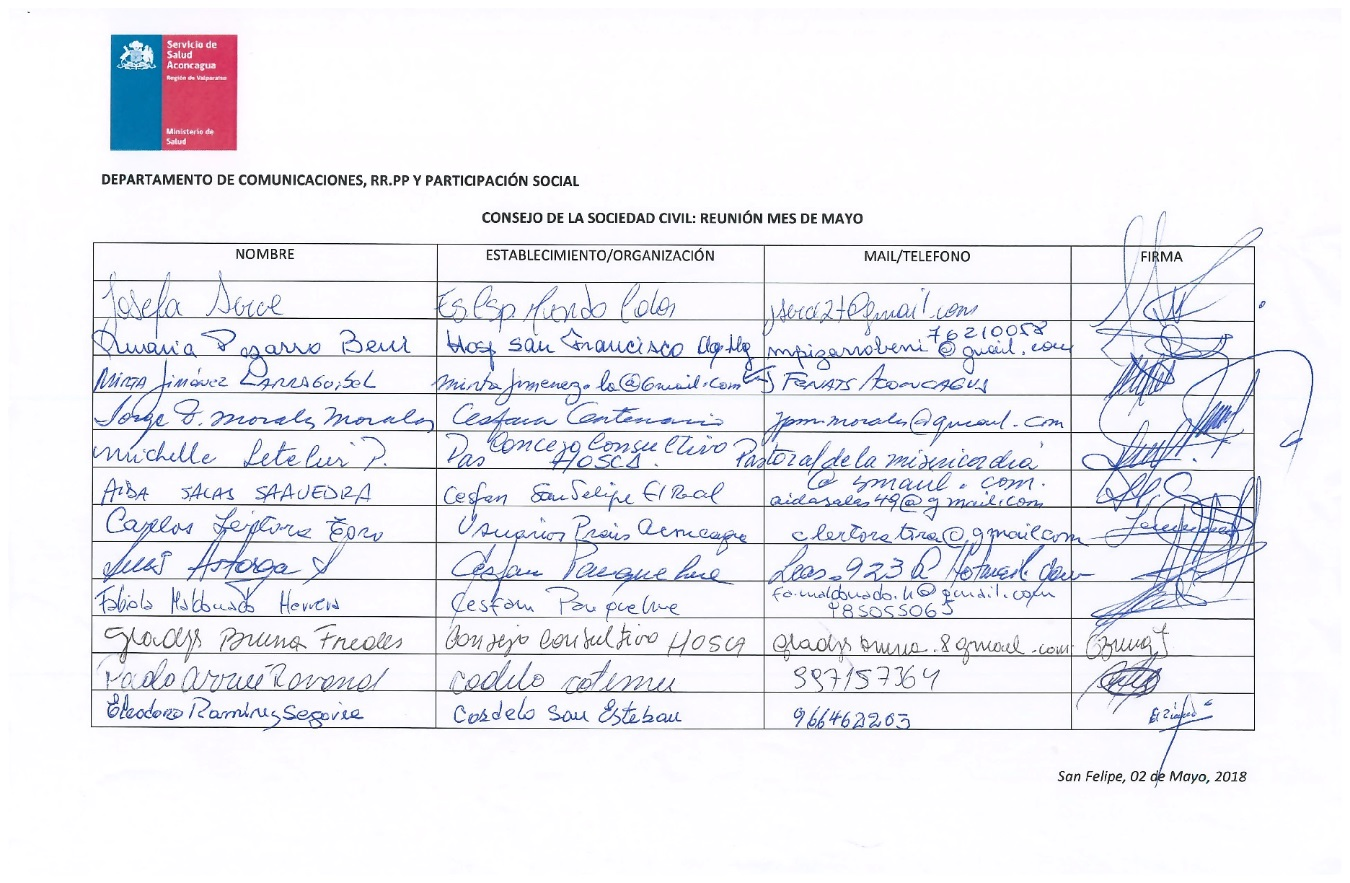 Servicio de
Salud
Aconcagua
Región de Valparaíso
Ministerio de
Salud
DEPARTAMENTO DE COMUNICACIONES, RR.PP Y PARTICIPACIÓN SOCIAL
CONSEJO DE LA SOCIEDAD CIVIL: REUNIÓN MES DE MAYO
NOMBRE ESTABLECIMIENTO/ORGANIZACIÓN MAIL/TELEFONO FIRMA
Josefa Esc Esp Mundo Color
Pizarro Beni Hosp San Francisco 76210058 mpizarrobeni@gmail.com
Mirta Jiménez Larraguibel mirtajimenez.la@Gmail.com FENATS ACONCAGUA
Jorge P. Morales Morales Cesfam Centenario jpmmorales@gmail.com
Michelle Letelier P. Concejo Consultivo HOSCA. Pastoral de la misericordia @ gmail.com.
AIDA SALAS SAAVEDRA Cesfam San Felipe El Real aidasalas49@gmail.com
Carlos Toro Usuarios Prais Aconcagua clertoratira@gmail.com
Luis Astorga Cesfam Panquehue
Fabiola Maldonado Herrera Cesfam Panquehue fa.maldonado.h@gmail.com 985055065
Gladys Bruna Freales Consejo Consultivo HOSCA gladys bruna.8gmail.com
Paola 997157364
Eleodoro Ramirez Segovia Cosdelo San Esteban 966462203
San Felipe, 02 de Mayo, 2018